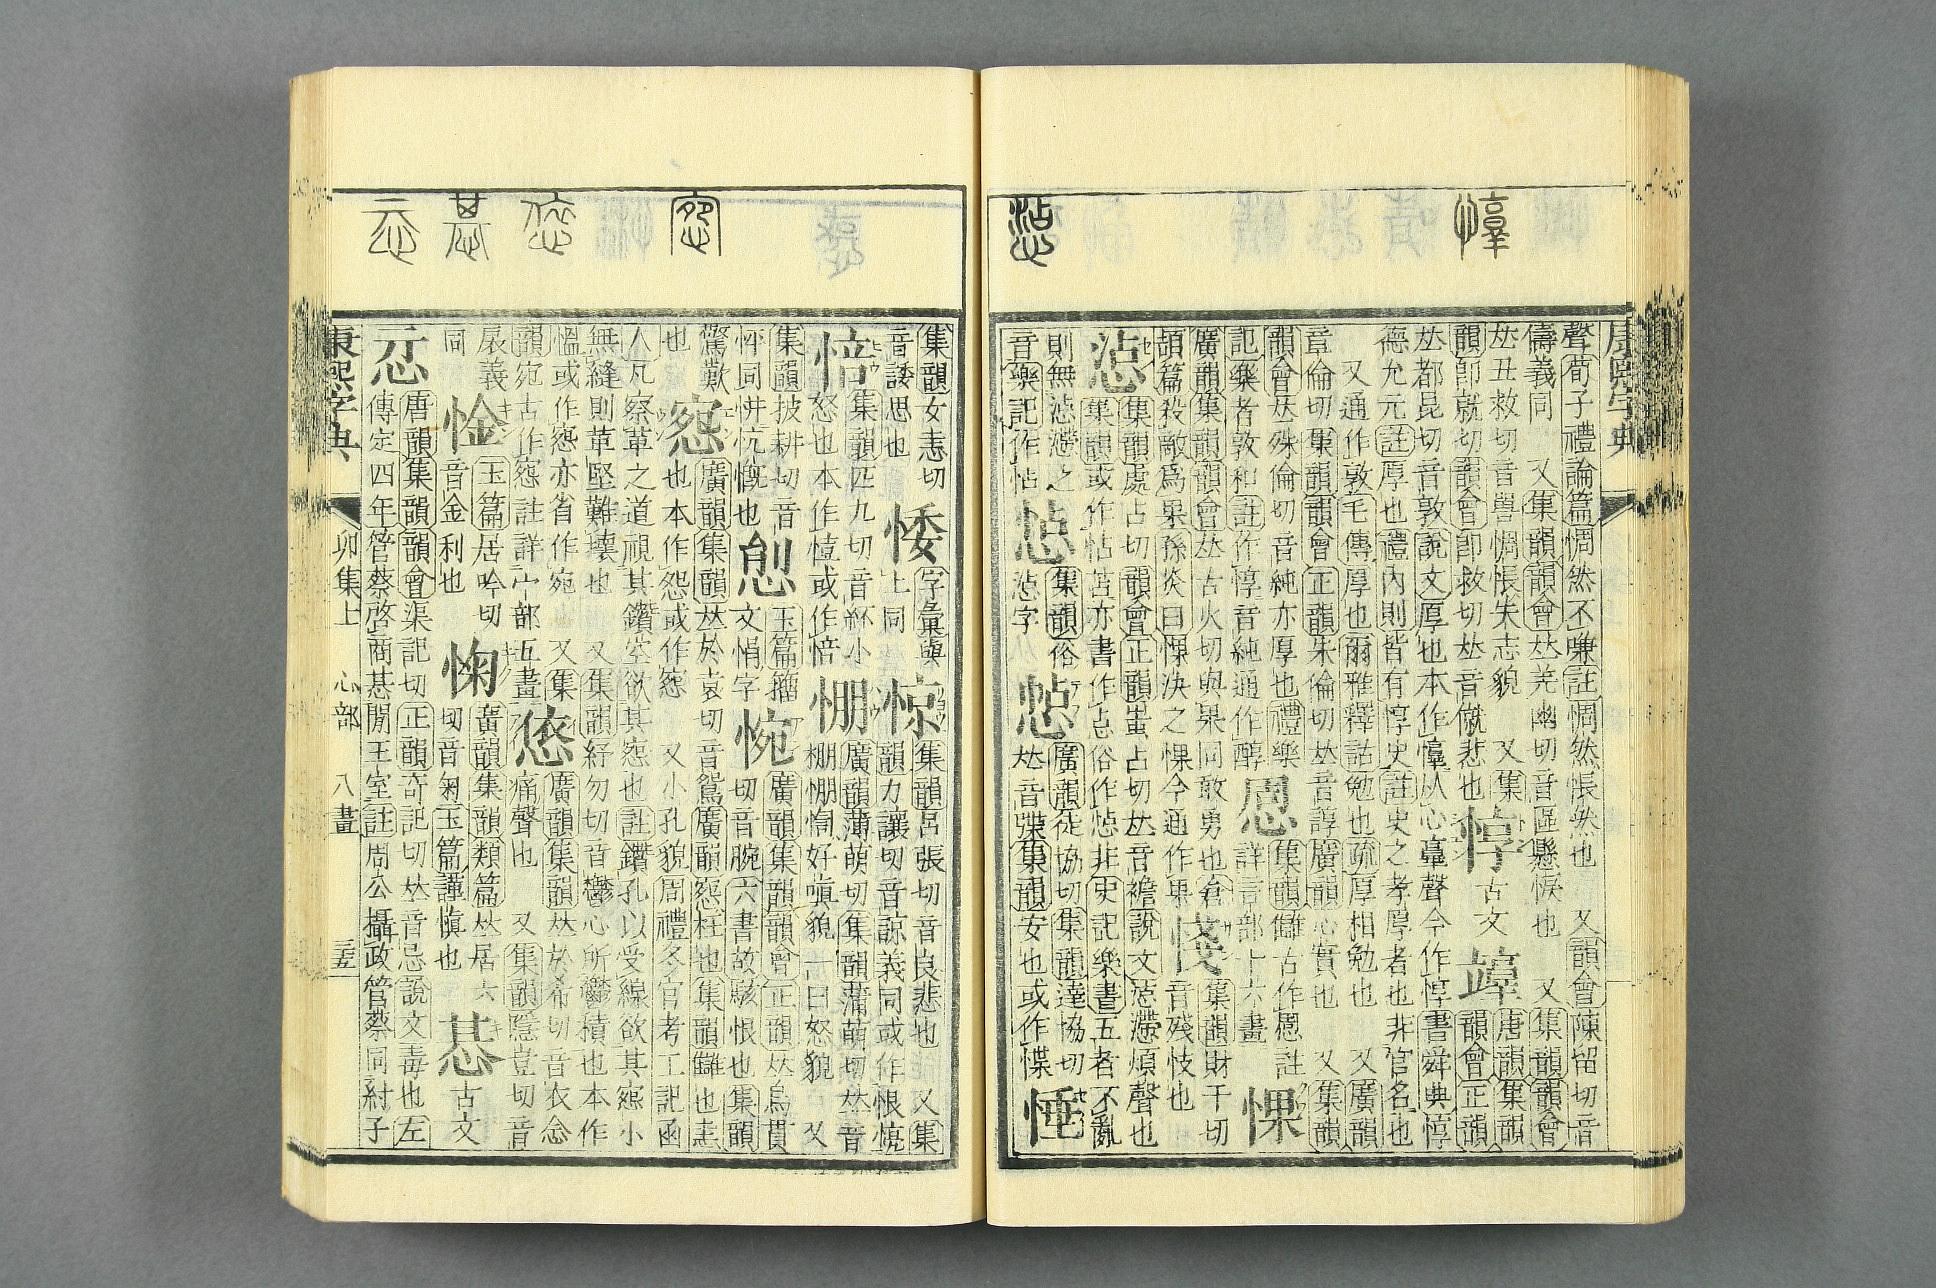 聲荀子禮論篇惆然不嗛註惆然悵然也 又韻會陳留切音
儔義同 又集韻韻會𠀤羌幽切音區懸悷也 又集韻韻會
𠀤丑救切音嘼惆悵失志貌 又集
韻卽就切韻會卽救切𠀤音僦悲也
惇 古文 唐韻集韻
韻會正韻
𠀤都昆切音敦說文厚也本作惇从心𦎫聲今作惇書舜典惇
德允元註厚也禮內則皆有惇史註史之孝厚者也非官名也
又通作敦毛傳厚也爾雅釋詁勉也疏厚相勉也 又廣韻
章倫切集韻韻會正韻朱倫切𠀤音諄廣韻心實也 又集韻
韻會𠀤殊倫切音純亦厚也禮樂
記樂者敦和註作惇音純通作醇
集韻讎古作
詳言部十六畫
惈
廣韻集韻韻會𠀤古火切與果同敢勇也倉
頡篇殺敵爲果孫炎曰惈決之惈今通作果
集韻財干切
音殘忮也
惉
集韻處占切韻會正韻蚩占切𠀤音襜說文惉懘煩聲也
集韻或作怗苫亦書作 俗作惦非史記樂書五者不亂
則無惉懘之
音樂記作怗
集韻俗
惉字
廣韻徒協切集韻達協切
𠀤音牒集韻安也或作惵
集韻女恚切
音諉思也
㥄
字彙與
上同
惊
集韻呂張切音良悲也 又集
韻力讓切音諒義同或作悢
㤳
集韻匹九切音紑小
怒也本作 或作㤳
㥊
廣韻薄萌切集韻蒲萌切𠀤音
棚㥊 好嗔貌一曰怒貌 又
集韻披耕切音
怦同恲忼慨也
玉篇籀
文悁字
惋
廣韻集韻韻會正韻𠀤烏貫
切音腕六書故駭恨也集韻
驚歎
也
惌
廣韻集韻𠀤於袁切音鴛廣韻惌枉也集韻讎也恚
也本作怨或作 又小孔貌周禮冬官考工記函
人凡察革之道視其鑽空欲其惌也註鑽孔以受線欲其惌小
無縫則革堅難壞也 又集韻紆勿切音鬱心所鬱積也本作
慍或作惌亦省作宛 又集
韻宛古作惌註詳宀部五畫
㥋
廣韻集韻𠀤於希切音衣念
痛聲也 又集韻隱豈切音
扆義
同
惍
玉篇居吟切
音金利也
㥌
廣韻集韻類篇𠀤居六
切音匊玉篇謹愼也
惎
古文
唐韻集韻韻會渠記切正韻奇記切𠀤音忌說文毒也左
傳定四年管蔡啓商惎閒王室註周公攝政管蔡同紂子
康熙字典 卯集上 心部 八畫